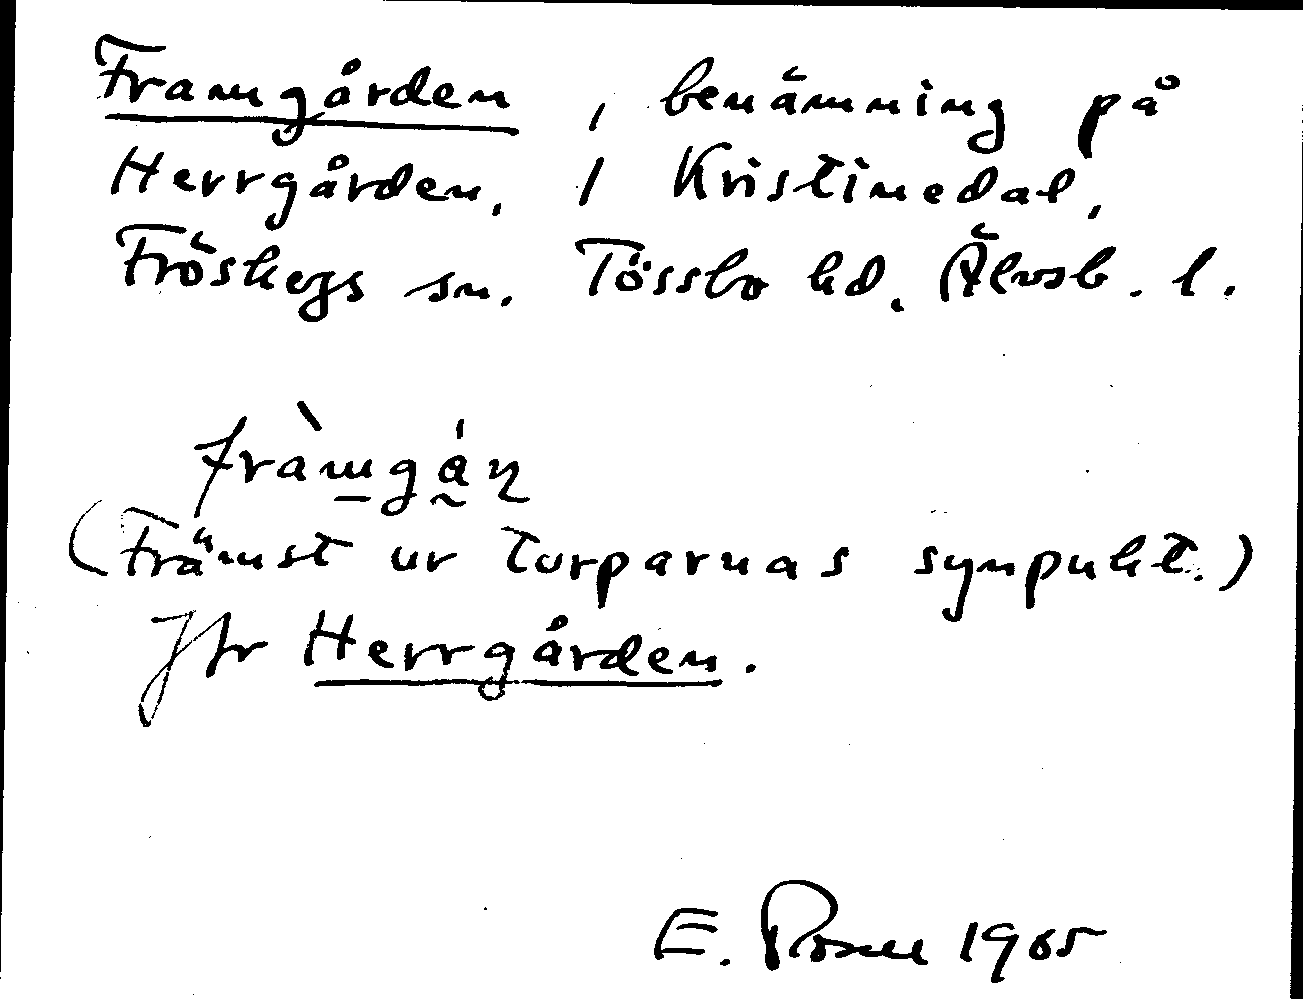 Framgården, benämning på
Herrgården, 1 Kristinedal,
Fröskogs sn. Tössbo hd. Älvsb. l.
fràmgán
(Främst ur torparnas synpukt.)
Jfr Herrgården.
E. Rosell 1965